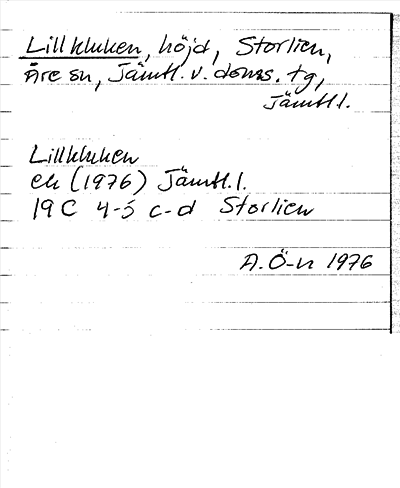 Lillkluken, höjd, Storlien,
Åre sn, Jämtl. v. doms. tg,
Jämtl.
Lillkluken
ek (1976) Jämtl. l.
19 C 4-5 c-d Storlien
A. Ö-n 1976